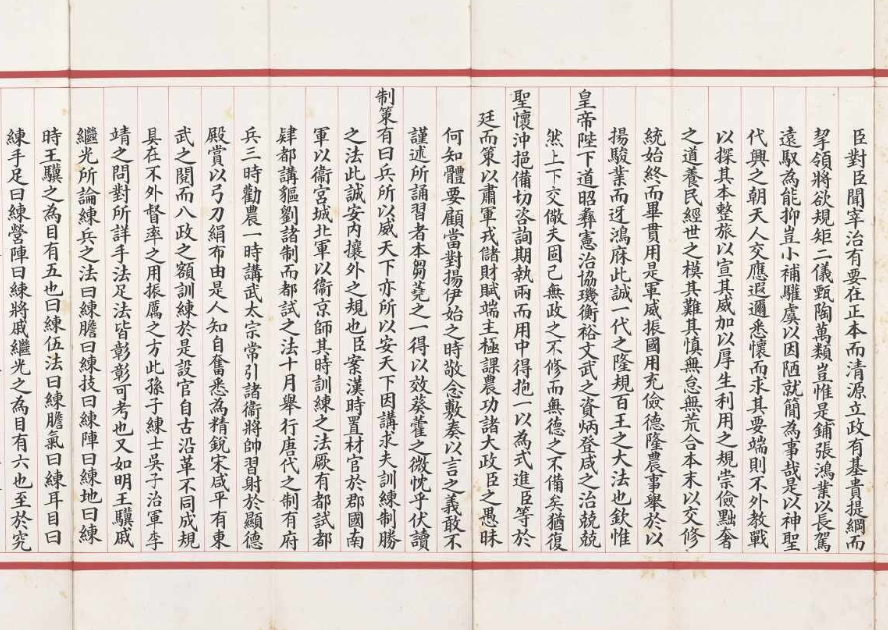 臣對臣聞宰治有要在正本而清源立政有基貴提綱而
挈領將欲規矩二儀甄陶萬類豈惟是鋪張鴻業以長駕
遠馭為能抑豈小補驩虞以因陋就簡為事哉是以神聖
代興之朝天人交應遐邇悉懷而求其要端則不外教戰
以探其本整旅以宣其威加以厚生利用之規崇儉黜奢
之道養民經世之模其難其慎無怠無荒合本末以交修
統始終而畢貫用是軍威振國用充儉德隆農事舉於以
揚駿業而迓鴻庥此誠一代之隆規百王之大法也欽惟
皇帝陛下道昭彝憲治協璣衡裕文武之資炳登咸之治兢兢
然上下交儆夫固已無政之不修而無德之不備矣猶復
聖懷沖挹備切咨詢期執兩而用中得抱一以為式進臣等於
廷而策以肅軍戎儲財賦端主極課農功諸大政臣之愚昧
何知體要顧當對揚伊始之時敬念敷奏以言之義敢不
謹述所誦習者本芻蕘之一得以效葵藿之微忱乎伏讀
制策有曰兵所以威天下亦所以安天下因講求夫訓練制勝
之法此誠安內攘外之規也臣案漢時置材官於郡國南
軍以衞宮城北軍以衞京師其時訓練之法厥有都試都
肄都講貙劉諸制而都試之法十月舉行唐代之制有府
兵三時勸農一時講武太宗常引諸衞將帥習射於顯德
殿賞以弓刀絹布由是人知自奮悉為精銳宋咸平有東
武之閱而八政之額訓練於是設官自古沿革不同成規
具在不外督率之用振厲之方此孫子練士吳子治軍李
靖之問對所詳手法足法皆彰彰可考也又如明王驥戚
繼光所論練兵之法曰練膽曰練技曰練陣曰練地曰練
時王驥之為目有五也曰練伍法曰練膽氣曰練耳目曰
練手足曰練營陣曰練將戚繼光之為目有六也至於究